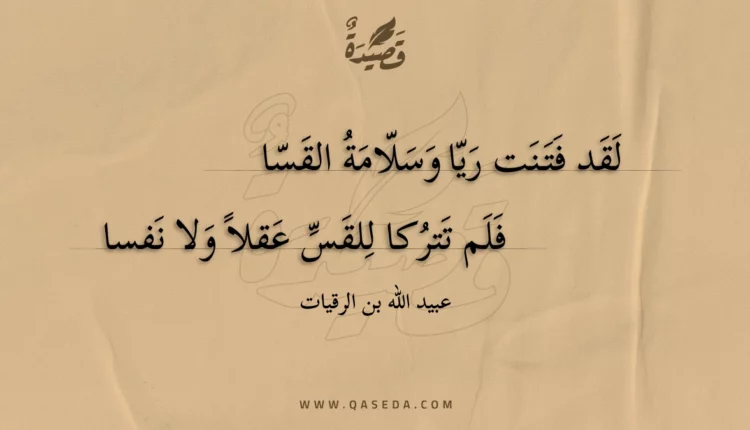 قَصِيدَةٌ
لَقَد فَتَنَت رَيّا وَسَلّامَةُ القَسّا
فَلَم تَترُكا لِلقَسِّ عَقلاً وَلا نَفسا
عبيد الله بن الرقيات
WWW.QASEDA.COM